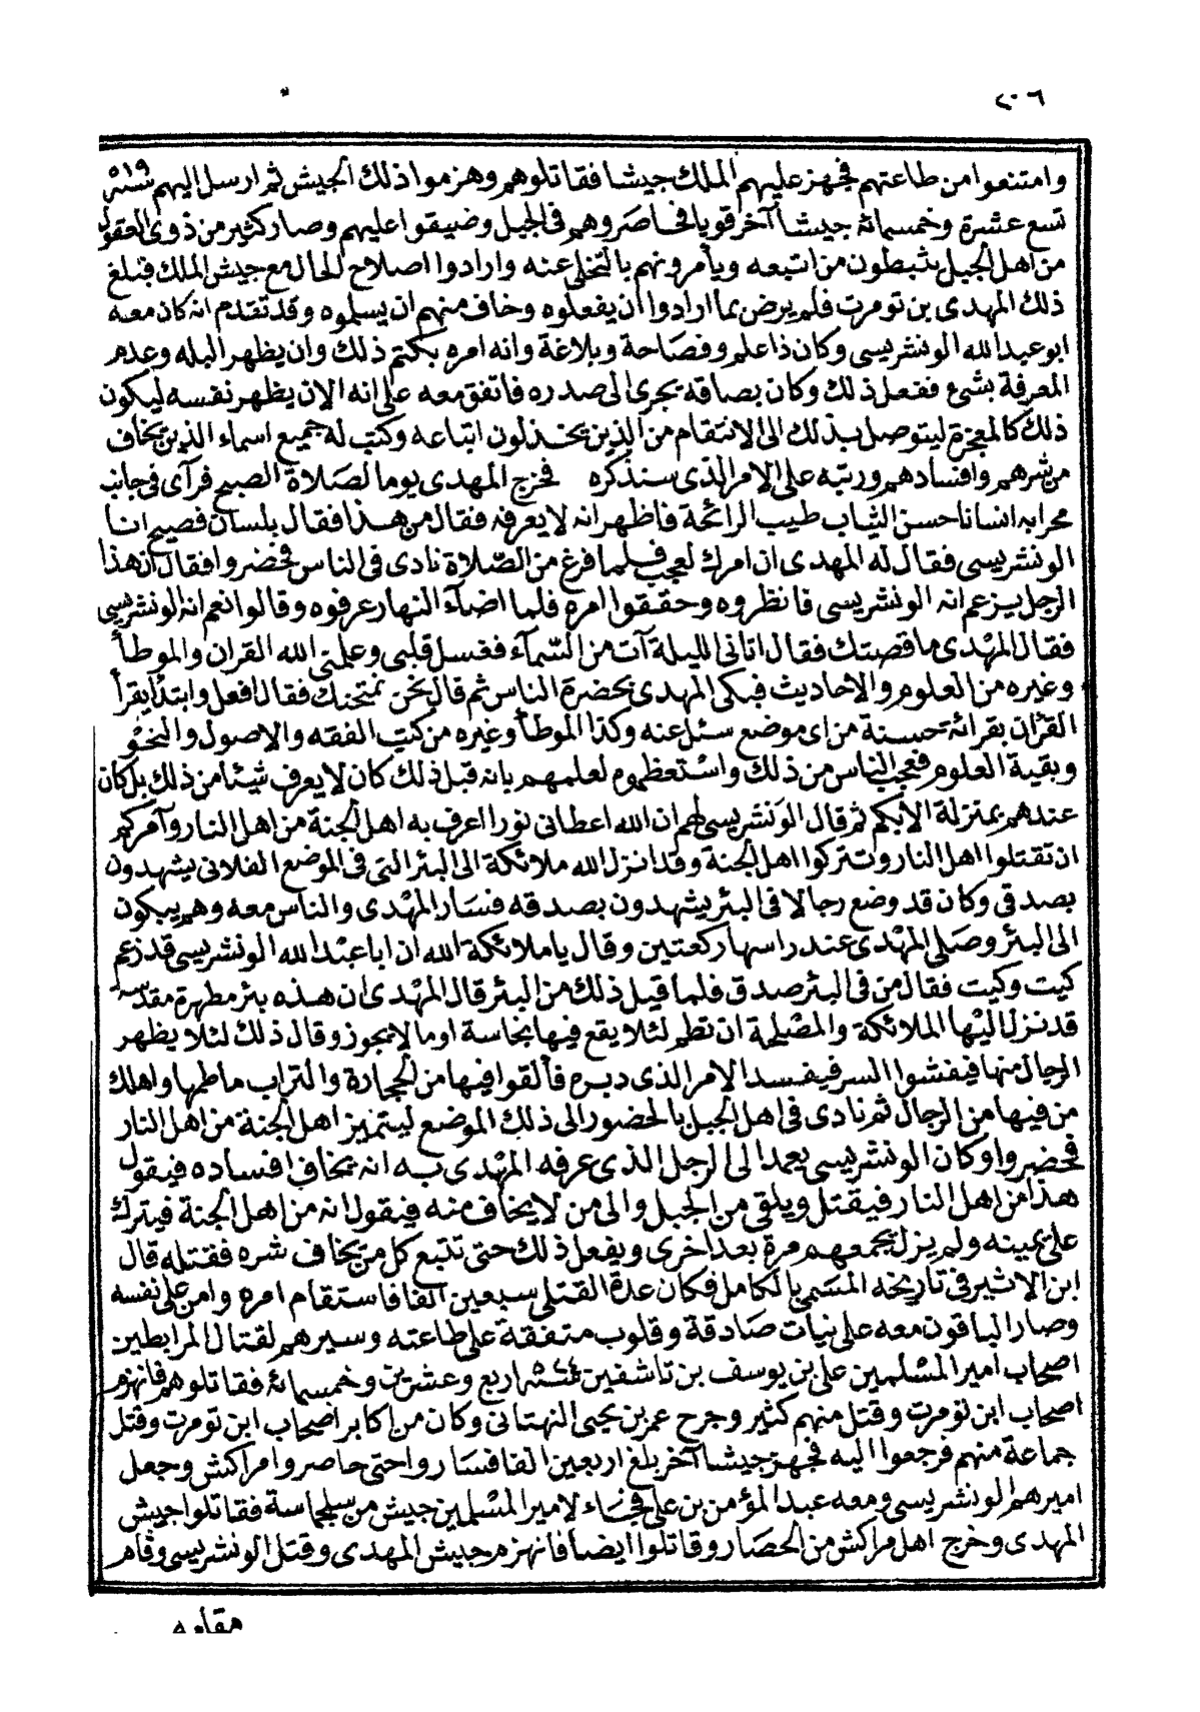 ٢٠٦
وامتنعوا من طاعتهم فجهز عليهم الملك جيشا فقاتلوهم وهزموا ذلك الجيش ثم ارسل اليهم سنة ٥١٩
تسع عشرة وخمسمائة جيشا آخر قويا فحاصروهم فى الجبل وضيقوا عليهم وصار كثير من ذوى العقول
من اهل الجبل يثبطون من اتبعه ويأمرونهم بالتخلى عنه وارادوا اصلاح الحال مع جيش الملك فبلغ
ذلك المهدى بن تومرت فلم يرض بما ارادوا ان يفعلوه وخاف منهم ان يسلموه وقد تقدم انه كان معه
ابو عبد الله الونشريسى وكان ذا علم وفصاحة وبلاغة وانه امره بكتم ذلك وان يظهر البله وعدم
المعرفة بشئ ففعل ذلك وكان بصاقه يجرى الى صدره فاتفق معه على انه الان يظهر نفسه ليكون
ذلك كالمعجزة ليتوصل بذلك الى الانتقام من الذين يخذلون اتباعه وكتب له جميع اسماء الذين يخاف
من شرهم وافسادهم ورتبه على الامر الذى سنذكره فخرج المهدى يوما لصلاة الصبح فرآى فى جانب
محرابه انسانا حسن الثياب طيب الرائحة فاظهر انه لا يعرفه فقال من هذا فقال بلسان فصيح انا
الونشريسى فقال له المهدى ان امرك لعجب فلما فرغ من الصلاة نادى فى الناس فحضروا فقال ان هذا
الرجل يزعم انه الونشريسى فانظروه وحققوا امره فلما اضآء النهار عرفوه وقالوا نعم انه الونشريسى
فقال المهدى ما قصتك فقال اتانى الليلة آت من السمآء فغسل قلبى وعلمنى الله القران والموطأ
وغيره من العلوم والاحاديث فبكى المهدى بحضرة الناس ثم قال نحن نمتحنك فقال افعل وابتدأ يقرأ
القرآن بقرائة حسنة من اى موضع سئل عنه وكذا الموطأ وغيره من كتب الفقه والاصول والنحو
وبقية العلوم فعجب الناس من ذلك واستعظموه لعلمهم بانه قبل ذلك كان لا يعرف شيئا من ذلك بل كان
عندهم بمنزلة الأبكم ثم قال الونشريسى لهم ان الله اعطانى نورا اعرف به اهل الجنة من اهل النار وآمركم
ان تقتلوا اهل النار وتتركوا اهل الجنة وقد انزل الله ملائكة الى البئر التى فى الموضع الفلانى يشهدون
بصدقى وكان قد وضع رجالا فى البئر يشهدون بصدقه فسار المهدى والناس معه وهم يبكون
الى البئر وصلى المهدى عند راسها ركعتين وقال يا ملائكة الله ان ابا عبد الله الونشريسى قد زعم
كيت وكيت فقال من فى البئر صدق فلما قيل ذلك من البئر قال المهدى ان هذه بئر مطهرة مقدسة
قد نزل اليها الملائكة والمصلحة ان تطم لئلا يقع فيها نجاسة او ما لا يجوز وقال ذلك لئلا يظهر
الرجال منها فيفشوا السر فيفسد الامر الذى دبره فألقوا فيها من الحجارة والتراب ما طمها واهلك
من فيها من الرجال ثم نادى فى اهل الجبل بالحضور الى ذلك الموضع ليتميز اهل الجنة من اهل النار
فحضروا وكان الونشريسى يعمد الى الرجل الذى عرفه المهدى به انه يخاف افساده فيقول
هذا من اهل النار فيقتل ويلقى من الجبل والى من لا يخاف منه فيقول انه من اهل الجنة فيترك
على يمينه ولم يزل يجمعهم مرة بعد اخرى ويفعل ذلك حتى تتبع كل من يخاف شره فقتله قال
ابن الاثير فى تاريخه المسمى بالكامل فكان عدة القتلى سبعين الفا فاستقام امره وامن على نفسه
وصار الباقون معه على نيات صادقة وقلوب متفقة على طاعته وسيرهم لقتال المرابطين
اصحاب امير المسلمين على بن يوسف بن تاشفين سنة ٥٢٤ اربع وعشرين وخمسمائة فقاتلوهم فانهزم
اصحاب ابن تومرت وقتل منهم كثير وجرح عمر بن يحيى الهنتانى وكان من اكابر اصحاب ابن تومرت وقتل
جماعة منهم فرجعوا اليه فجهز جيشا آخر بلغ اربعين الفا فساروا حتى حاصروا مراكش وجعل
اميرهم الونشريسى ومعه عبد المؤمن بن على فجاء لامير المسلمين جيش من سجلماسة فقاتلوا جيش
المهدى وخرج اهل مراكش من الحصار وقاتلوا ايضا فانهزم جيش المهدى وقتل الونشريسى وقام
مقامه